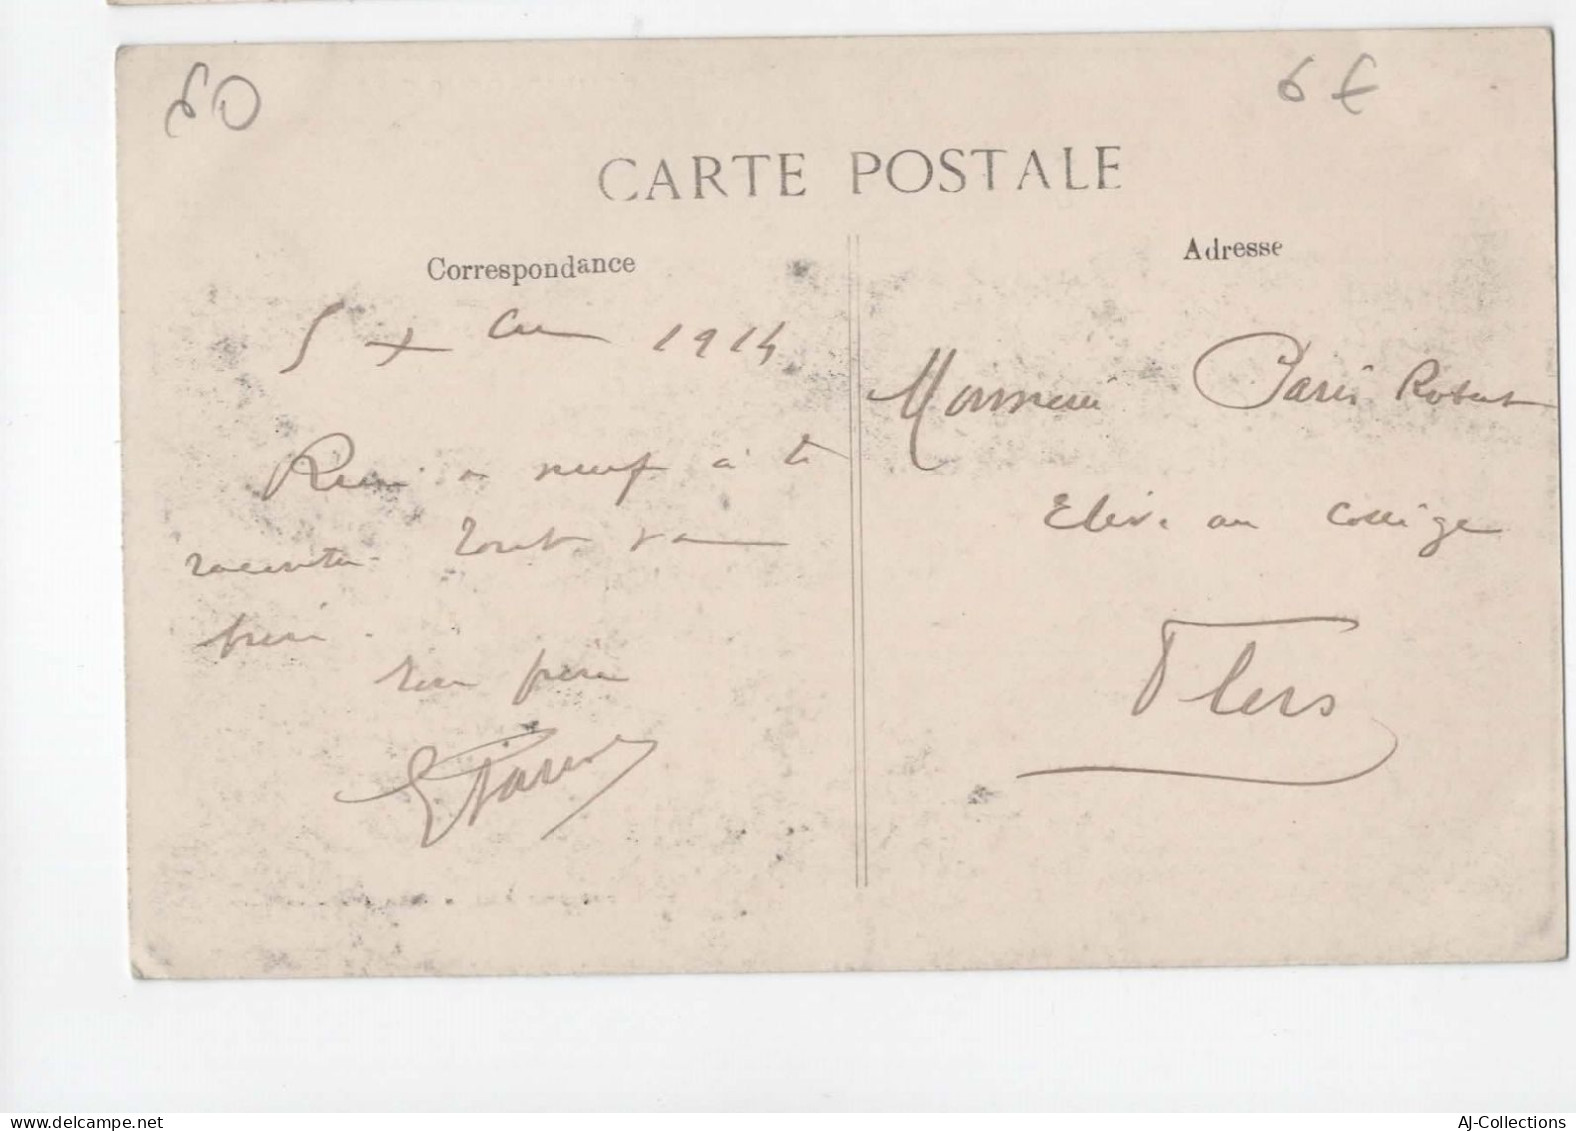 60
6 €
CARTE POSTALE
Correspondance
Adresse
5 Xbre 1914
Monsieur Paris Robert
Rien de neuf à te
raconter. Tout va
bien.
Ton frère
EParis
Elève au collège
Flers
www.delcampe.net
AJ-Collections